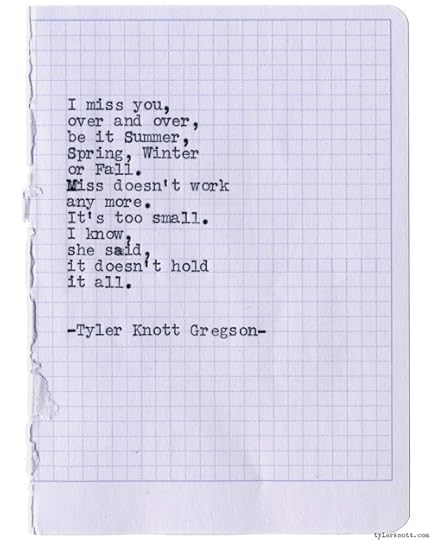 I miss you,
over and over,
be it Summer,
Spring, Winter
or Fall.
Miss doesn't work
any more.
It's too small.
I know,
she said,
it doesn't hold
it all.
-Tyler Knott Gregson-
tylerknott.com